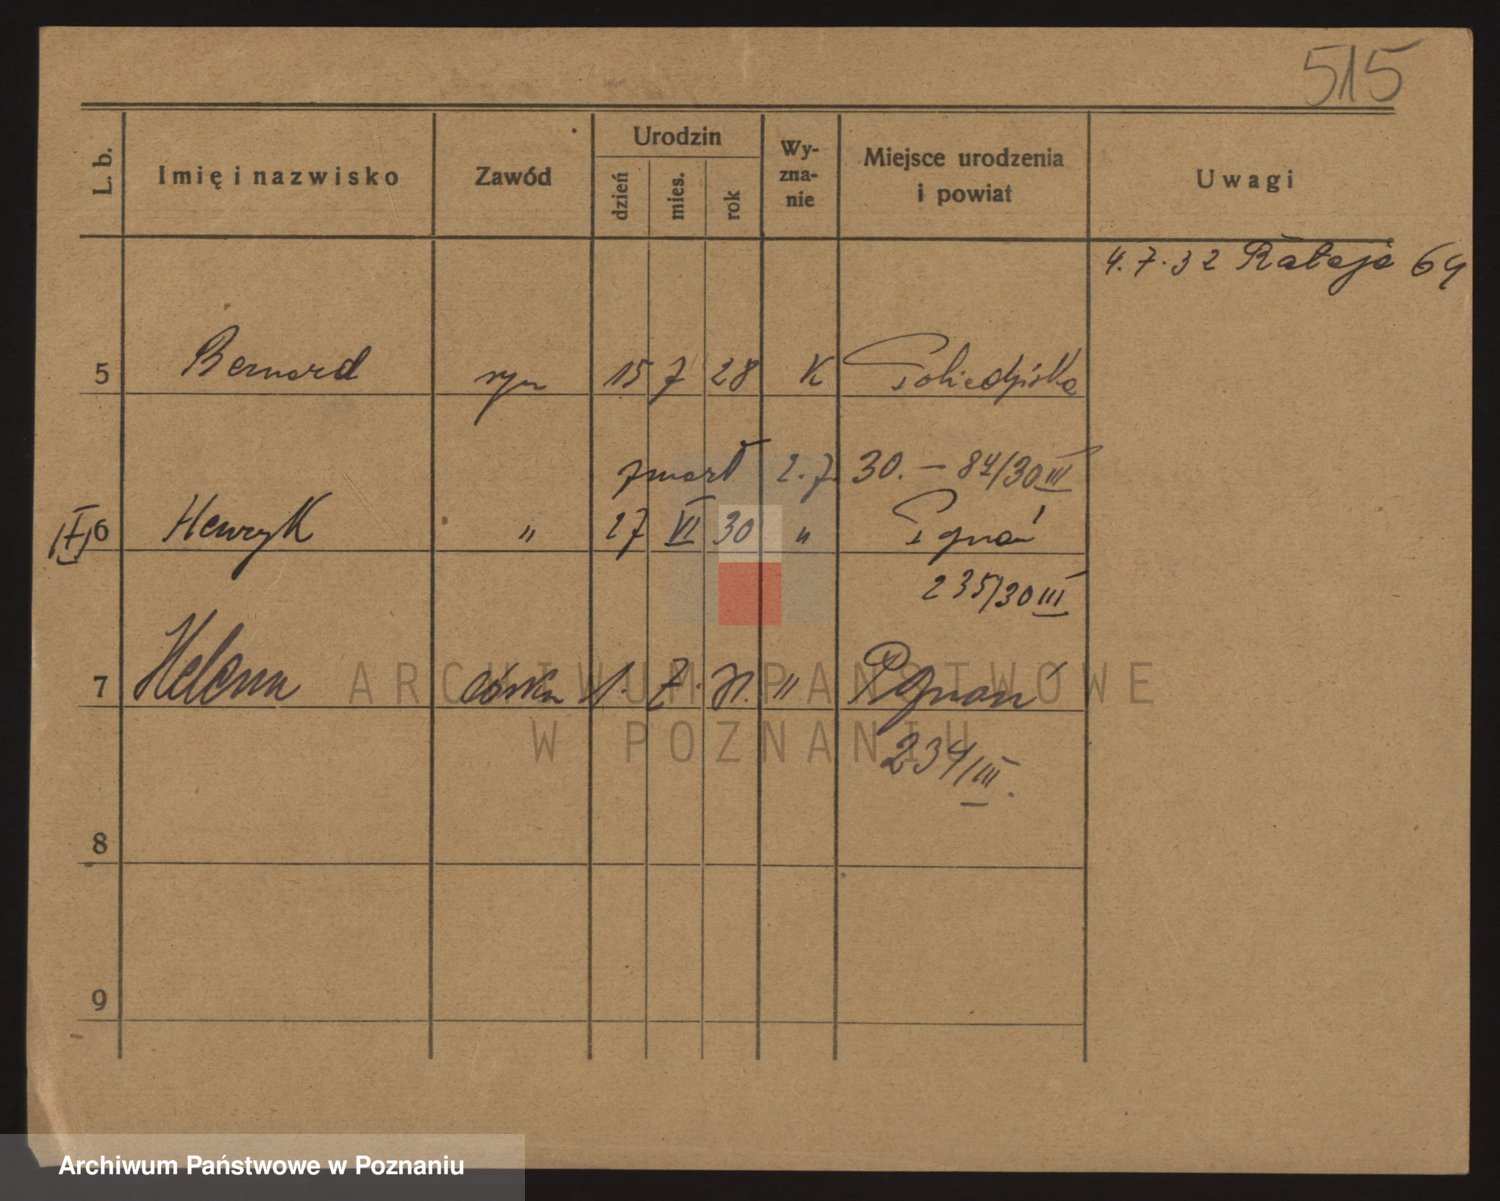 515
L. b. Imię i nazwisko Zawód Urodzin dzień mies. rok Wy-zna-nie Miejsce urodzenia i powiat Uwagi
4.7.32 Rataje 69
5 Bernard syn 15 7 28 K Pobiedziska
zmarł 2.7.30. — 84/30 III
6 Henryk " 27 VI 30 " Poznań
235/30 III
7 Helena córka 1. 7. 31. " Poznań
234/III.
8
9
ARCHIWUM PAŃSTWOWE
W POZNANIU
Archiwum Państwowe w Poznaniu